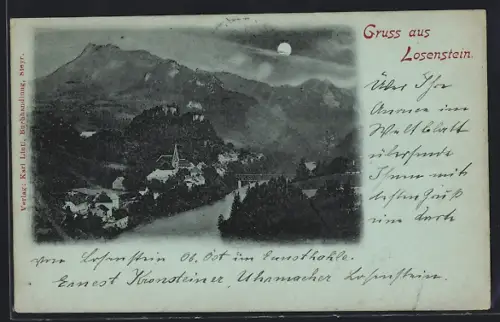 Gruss aus
Losenstein.
Verlag: Karl Lintl, Buchhandlung, Steyr.
Über Ihr
Annonce im
Weltblatt
übersende
Ihnen mit
besten Gruß
eine Karte
von Losenstein Ob. Öst im Ennsthale.
Ernest Kronsteiner, Uhrmacher Losenstein.